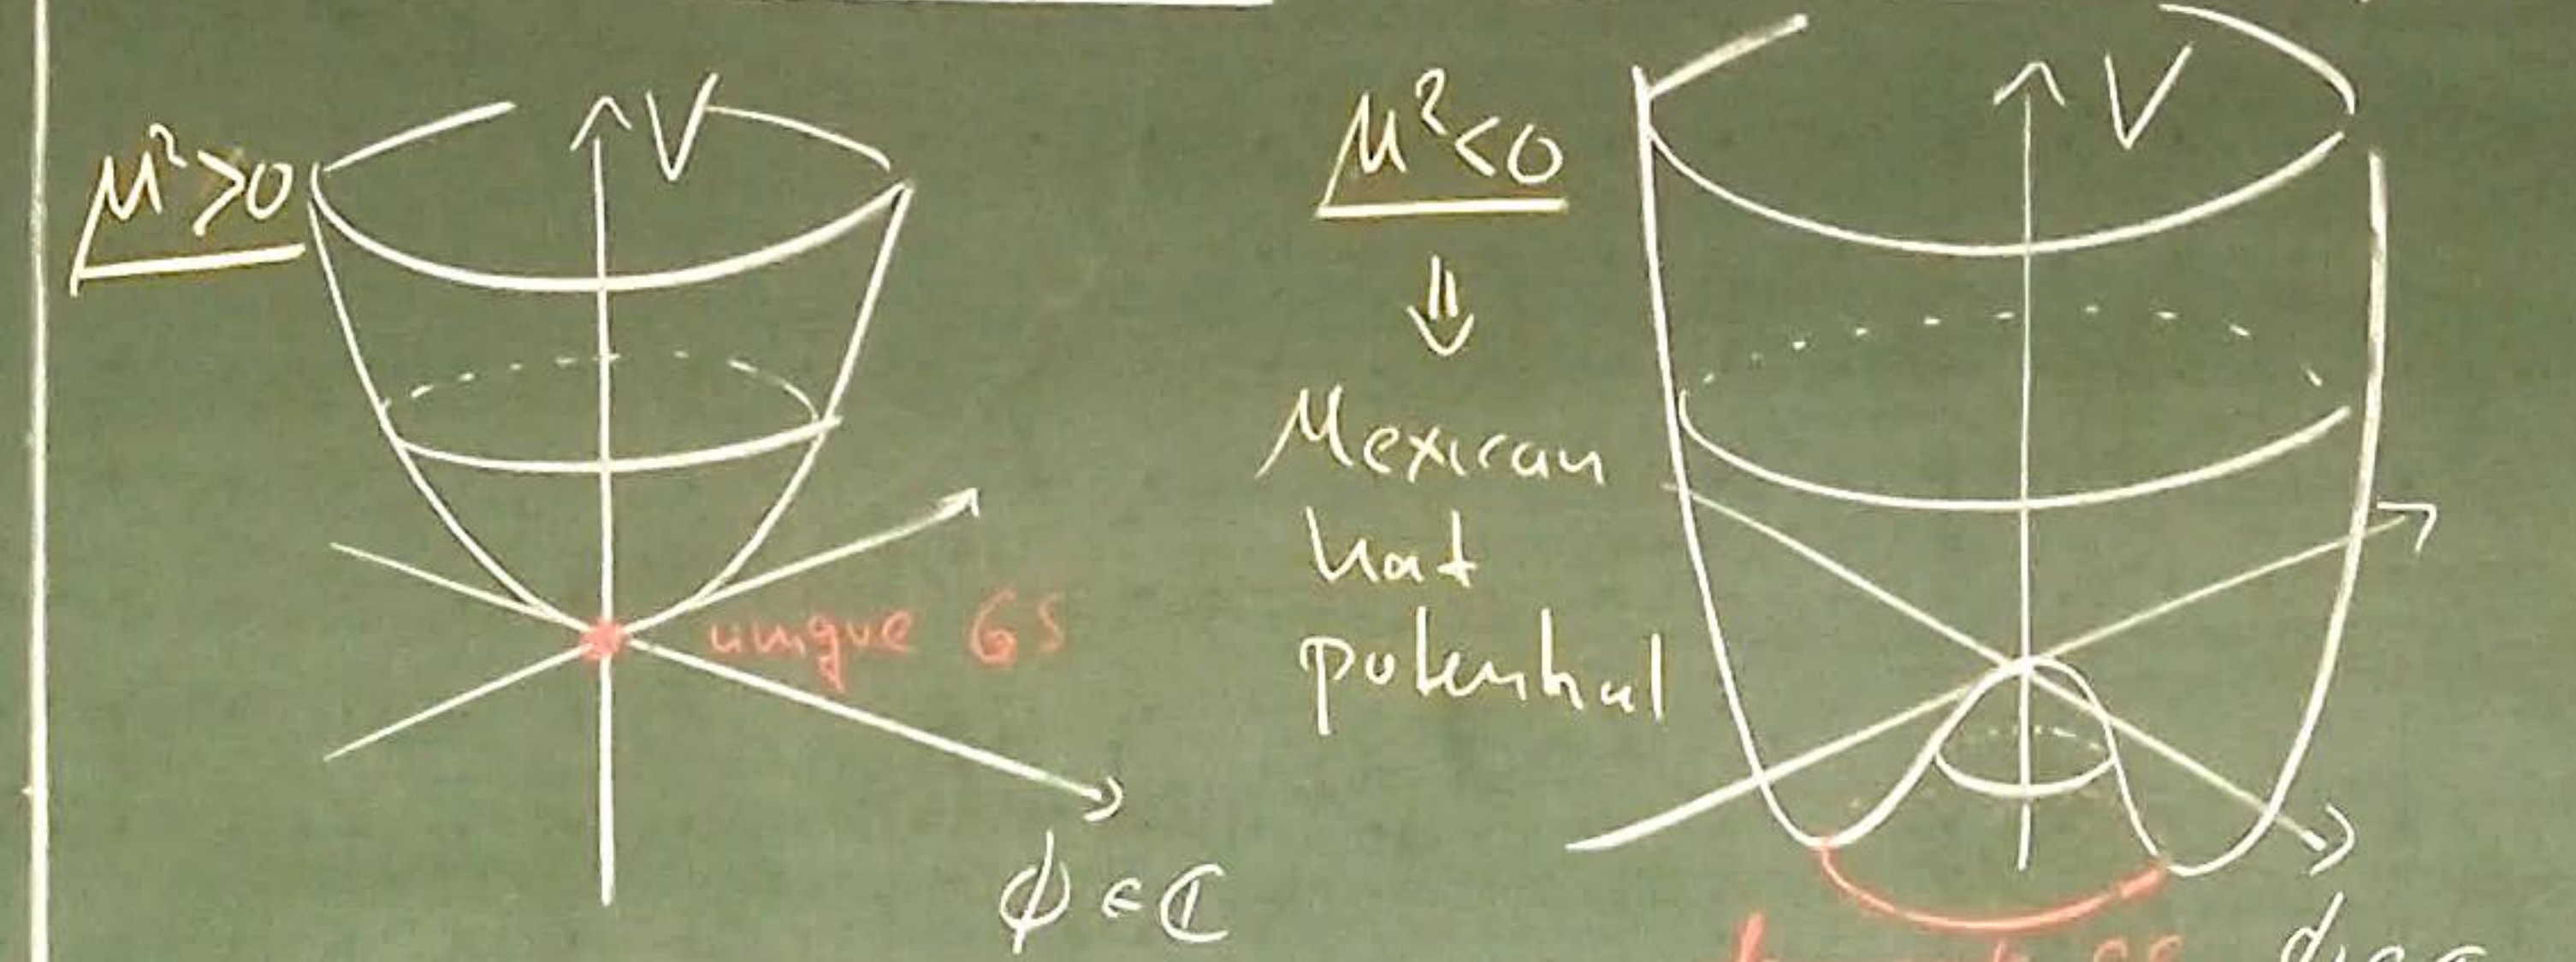 μ²>0
V
unique GS
ϕ∈ℂ
μ²<0
⇓
Mexican
hat
potential
V